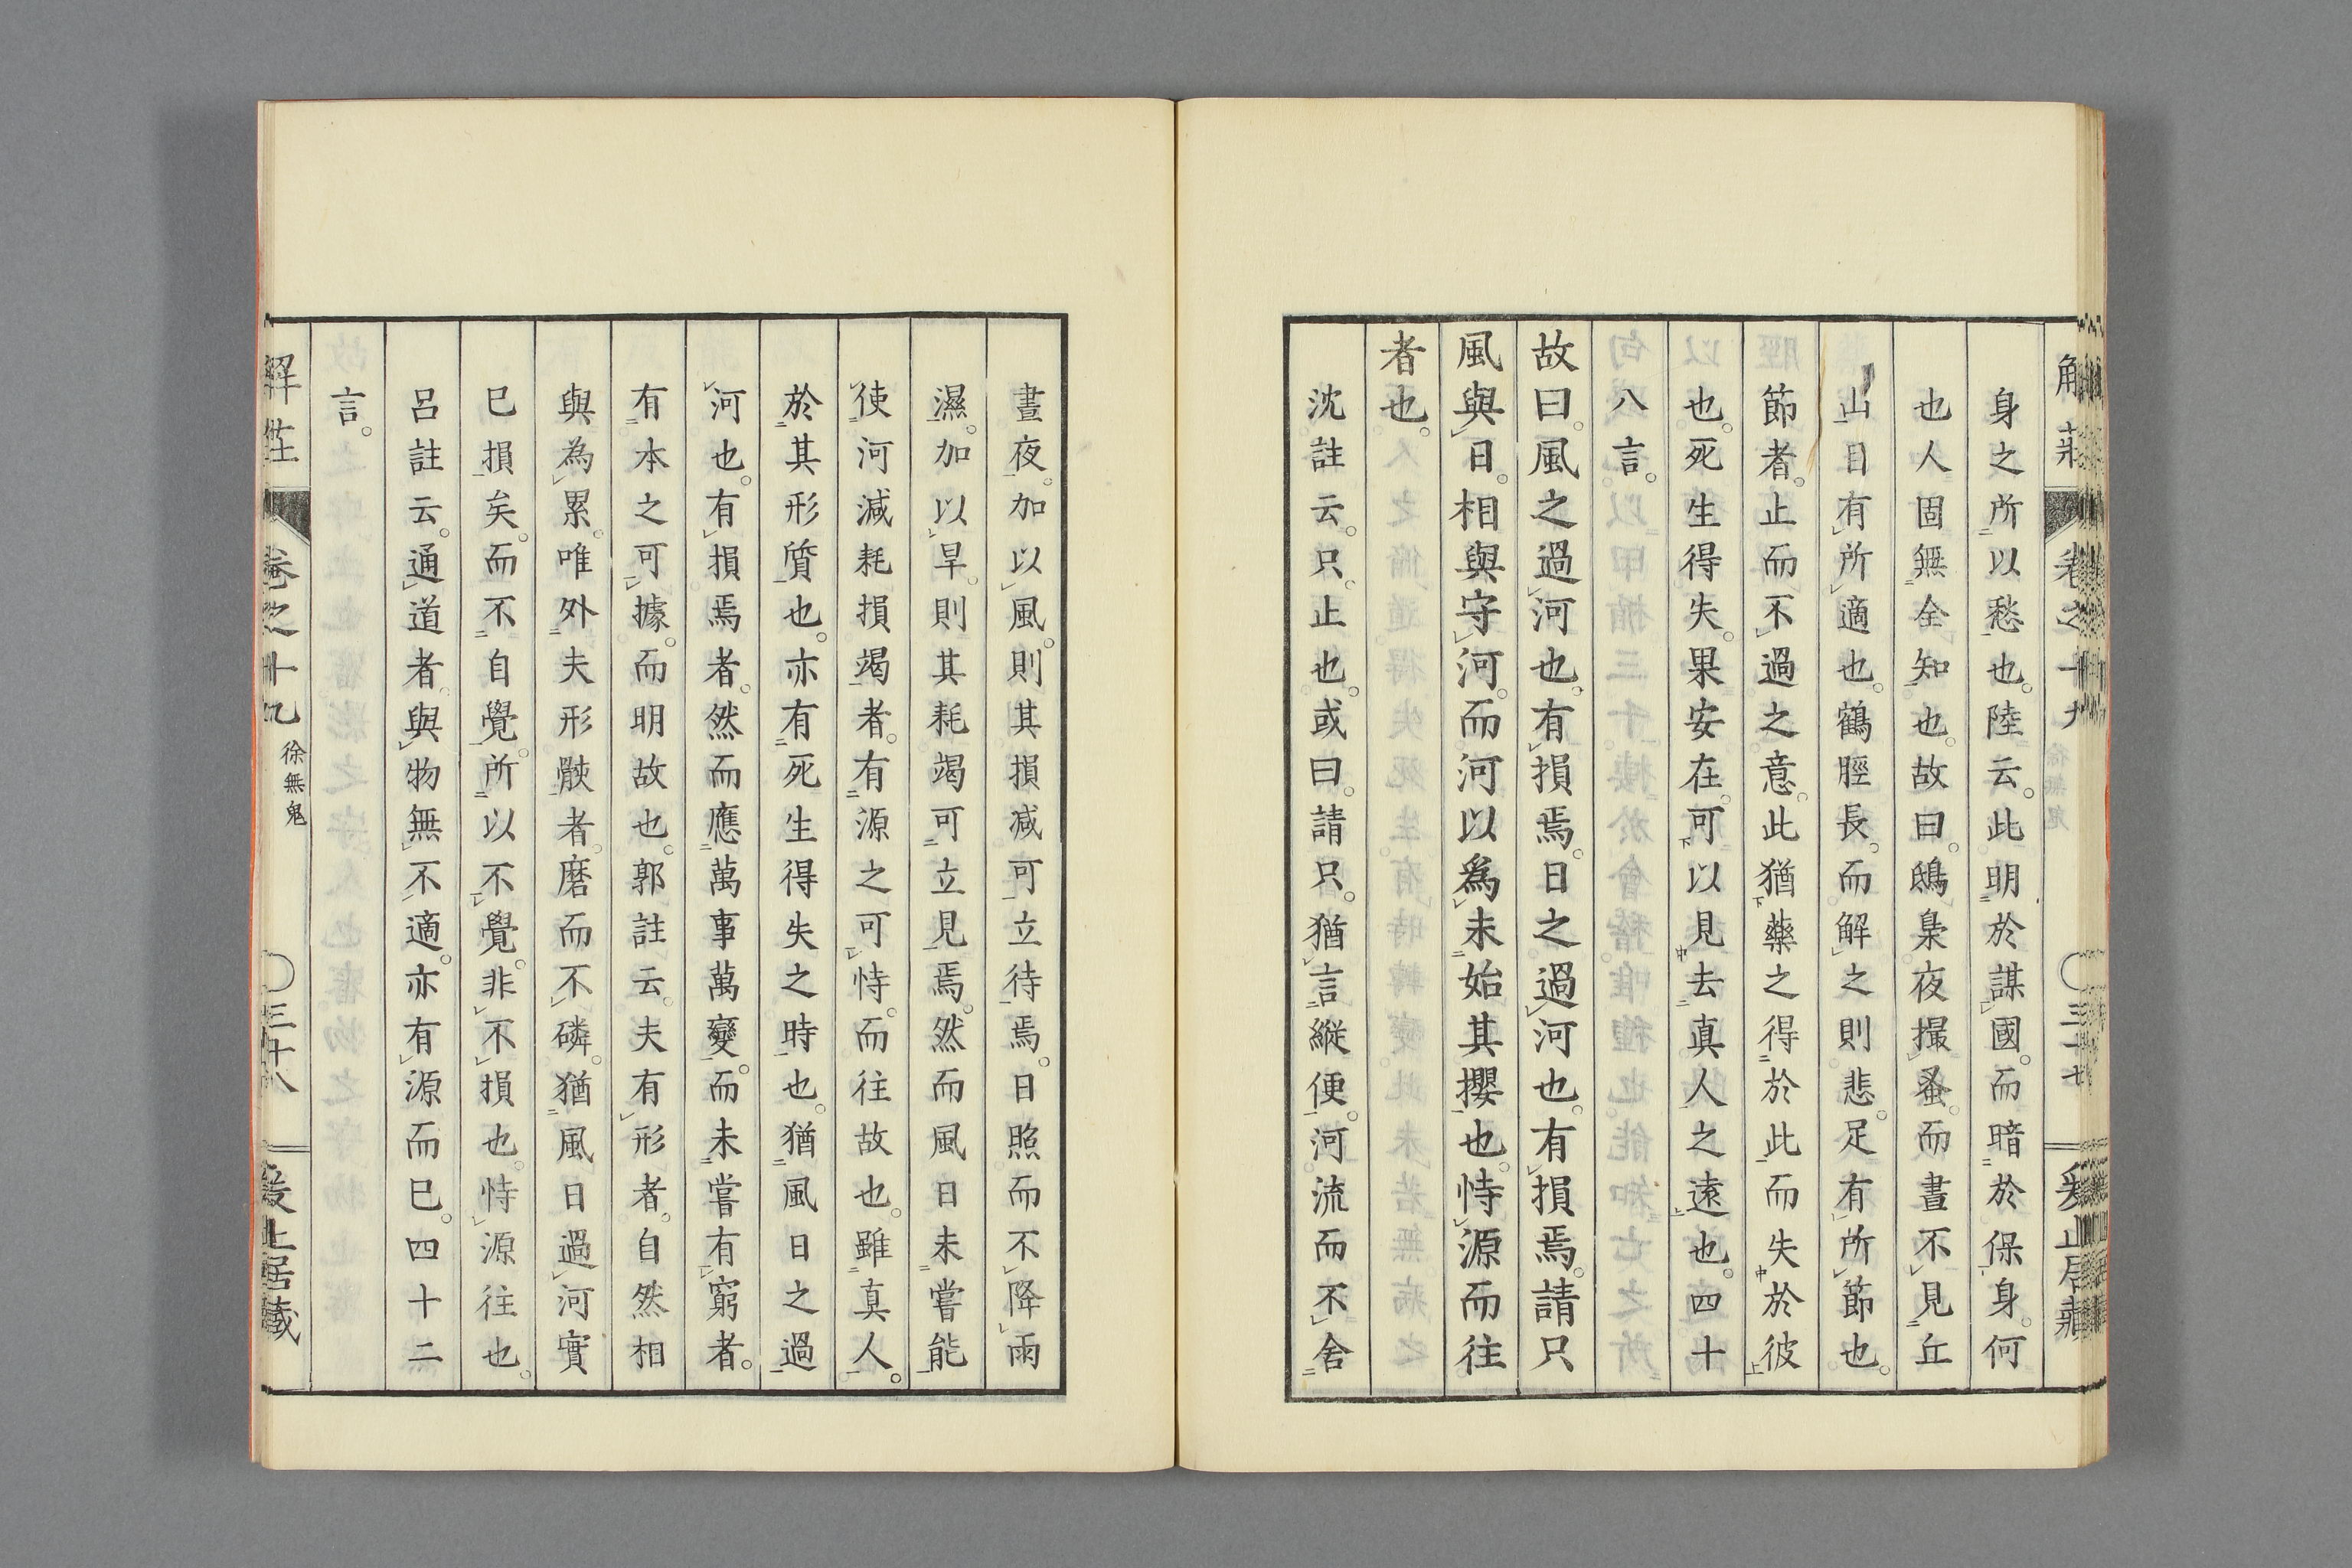 身之所以愁也。陸云。此明於謀國。而暗於保身。何
也人固無全知也。故曰。鴟梟夜撮蚤。而晝不見丘
山目有所適也。鶴脛長。而解之則悲。足有所節也。
節者。止而不過之意。此猶藥之得於此而失於彼
也。死生得失。果安在。可以見去真人之遠也。四十
八言。
故曰。風之過河也。有損焉。日之過河也。有損焉。請只
風與日。相與守河。而河以爲未始其攖也。恃源而往
者也。
沈註云。只。止也。或曰。請只。猶言縱便。河流而不舍
晝夜。加以風。則其損減可立待焉。日照而不降雨
濕。加以旱。則其耗竭可立見焉。然而風日未嘗能
使河減耗損竭者。有源之可恃。而往故也。雖真人。
於其形質也。亦有死生得失之時也。猶風日之過
河也。有損焉者。然而應萬事萬變。而未嘗有窮者。
有本之可據。而明故也。郭註云。夫有形者。自然相
與為累。唯外夫形骸者。磨而不磷。猶風日過河實
已損矣。而不自覺。所以不覺。非不損也。恃源往也。
呂註云。通道者。與物無不適。亦有源而已。四十二
言。
解莊 卷之十九 徐無鬼 三十八